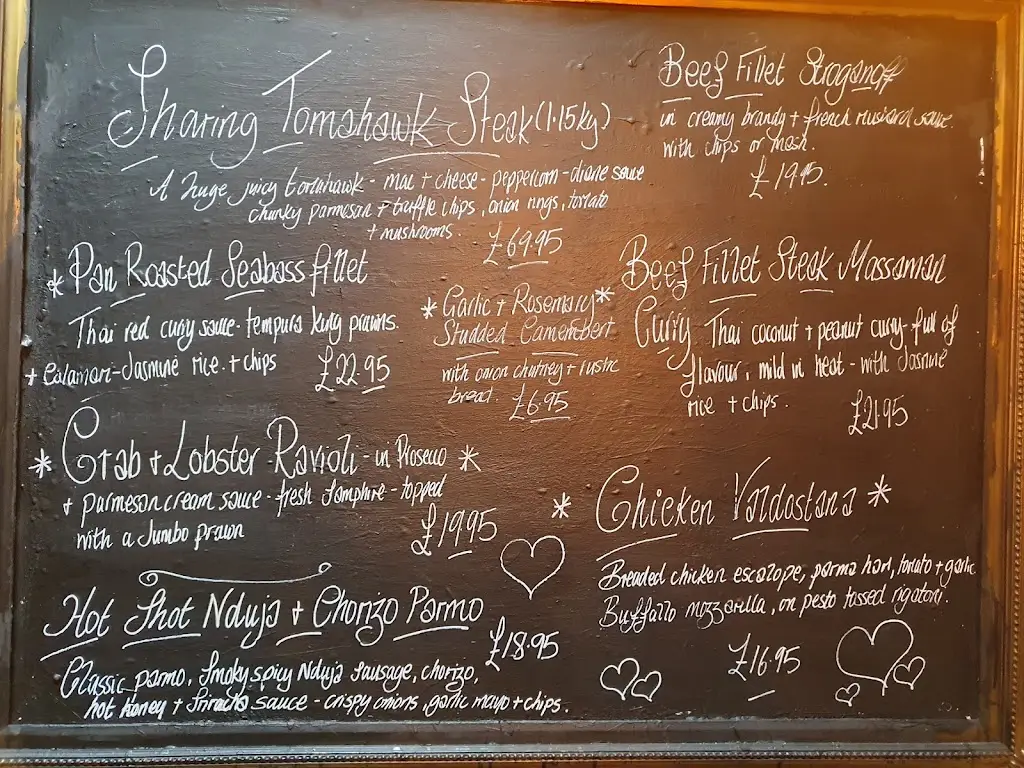 Sharing Tomahawk Steak (1.15kg)
A huge, juicy tomahawk - mac + cheese - peppercorn - diane sauce
chunky parmesan + truffle chips, onion rings, tomato
+ mushrooms
£69.95
Beef Fillet Stroganoff
in creamy brandy + french mustard sauce.
with chips or mash.
£19.95.
* Pan Roasted Seabass fillet
Thai red curry sauce - tempura king prawns.
+ Calamari - Jasmine rice. + chips
£22.95
* Garlic + Rosemary *
Studded Camembert
with onion chutney + rustic
bread.
£6.95
Beef Fillet Steak Massaman
Curry Thai coconut + peanut curry - full of
flavour, mild in heat - with Jasmine
rice + chips.
£21.95
* Crab + Lobster Ravioli - in Prosecco *
+ parmesan cream sauce - fresh Samphire - topped
with a Jumbo prawn
£19.95
* Chicken Valdostana *
Breaded chicken escalope, parma ham, tomato + garlic
Buffallo mozzarilla, on pesto tossed rigatoni.
£16.95
Hot Shot Nduja + Chorizo Parmo
£18.95
Classic parmo, Smoky spicy Nduja Sausage, chorizo,
hot honey + Sriracha sauce - crispy onions, garlic mayo + chips.